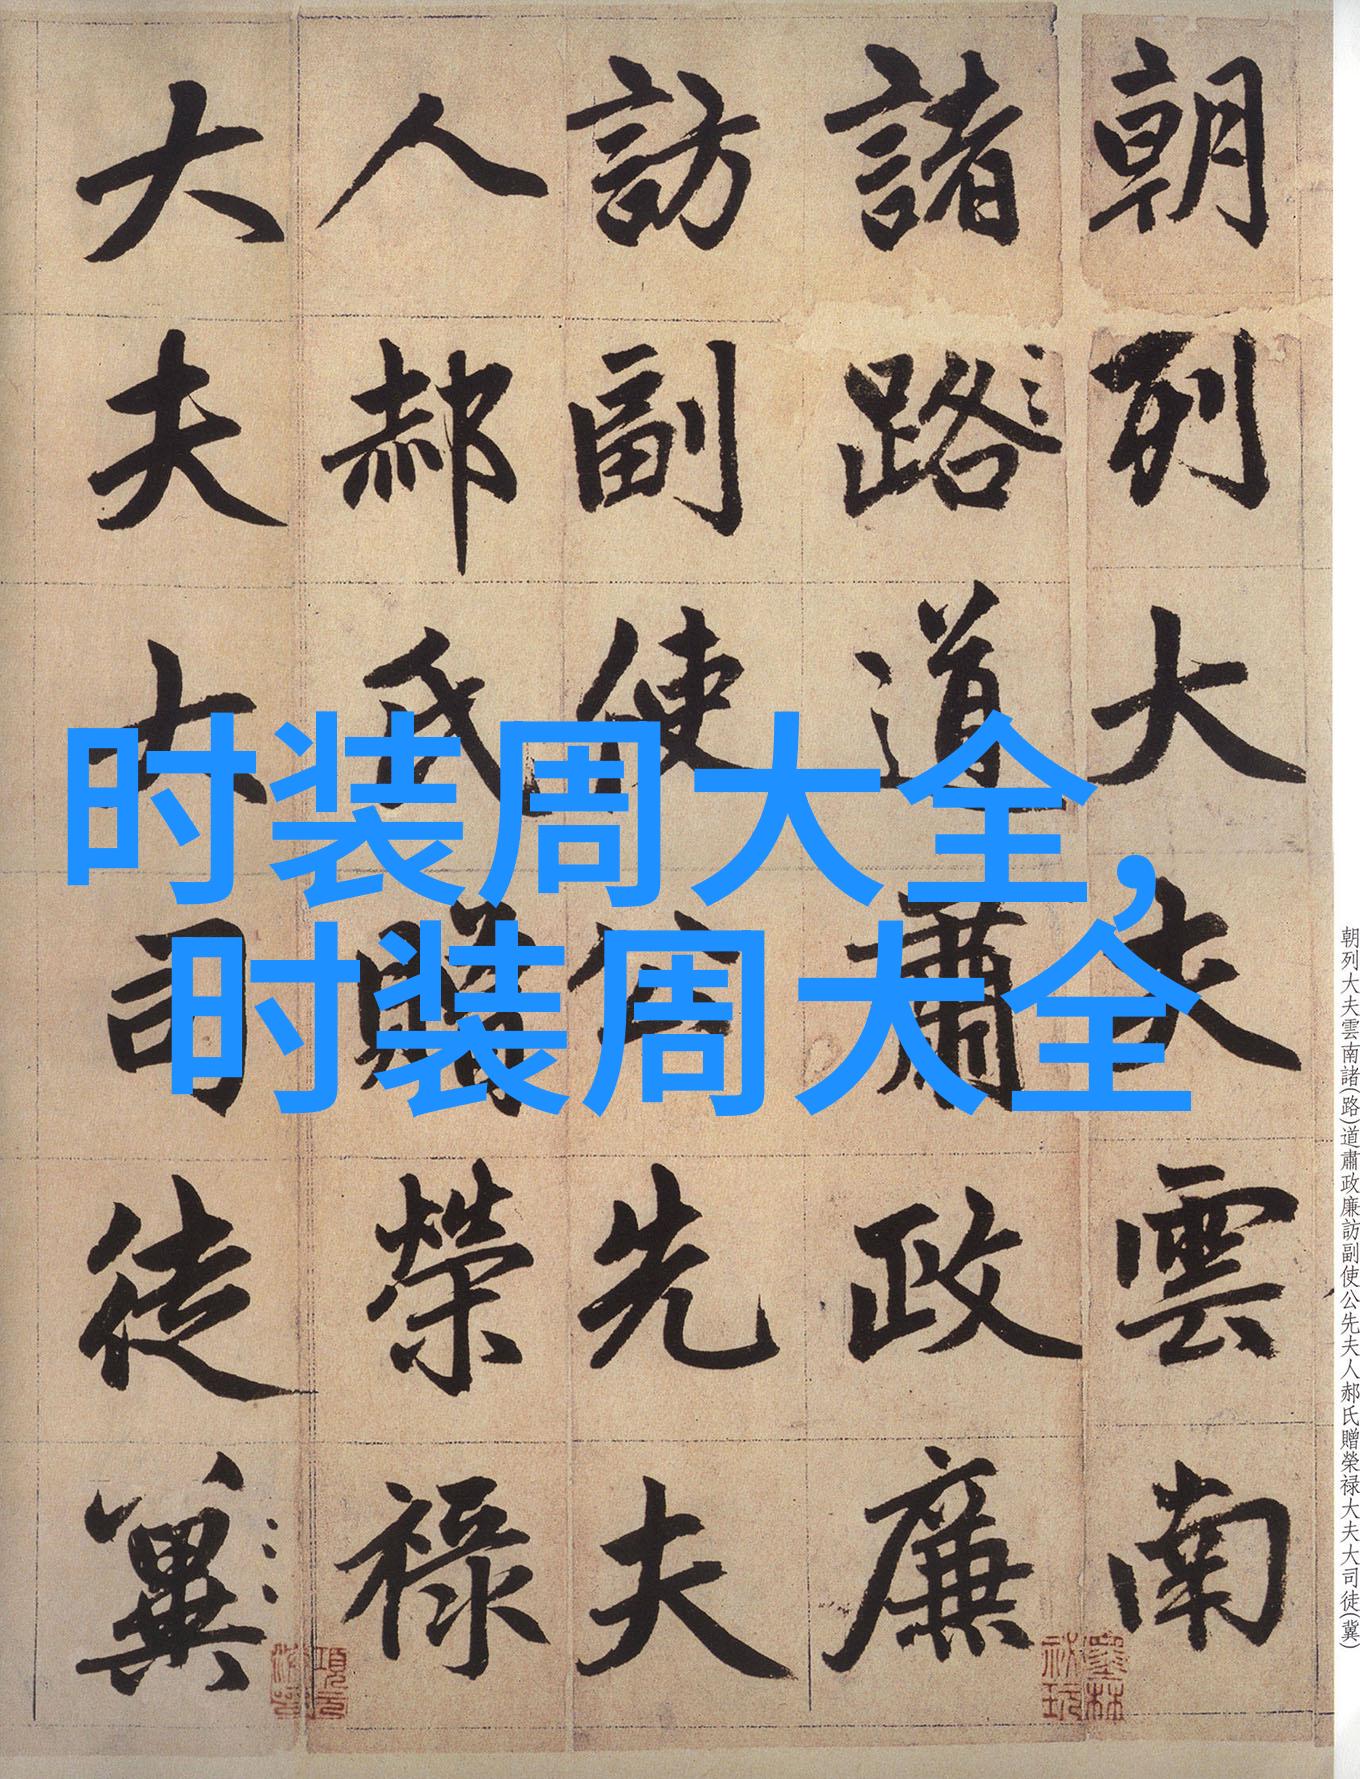 朝列大夫雲南
諸路道肅政廉
訪副使公先夫
人郝氏贈榮祿
大夫大司徒冀
时装周大全，
时装周大全
朝列大夫雲南諸(路)道肅政廉訪副使公先夫人郝氏贈榮禄大夫大司徒(冀)